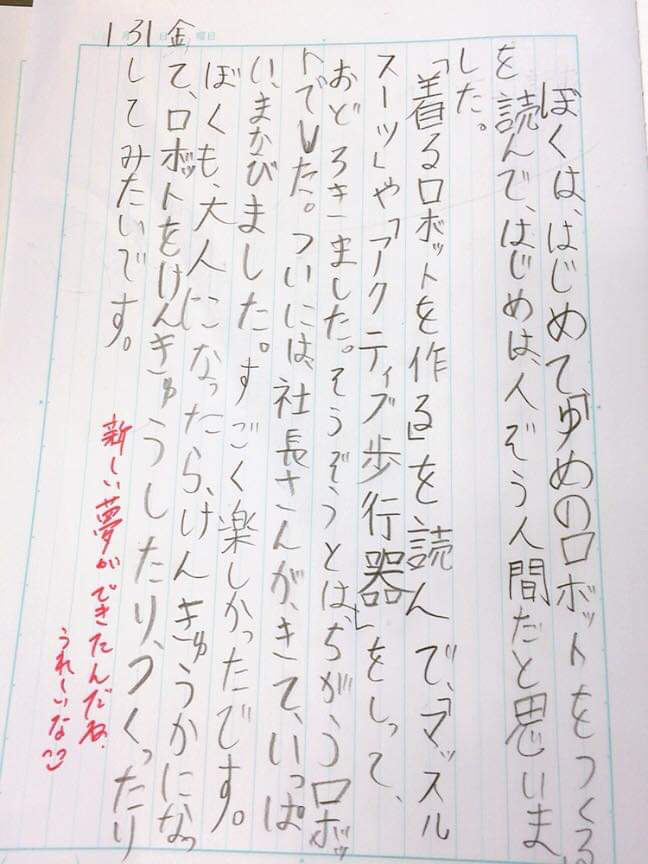 1月31日金曜日
ぼくは、はじめて、「ゆめのロボットをつくる
を読んで、はじめは、人ぞう人間だと思いま
した。
「着るロボットを作る」を読んで、「マッスル
スーツ」や「アクティブ歩行器」をしって、
おどろきました。そうぞうとは、ちがうロボッ
トでした。ついには、社長さんが、きて、いっぱ
い、まなびました。すごく楽しかったです。
ぼくも、大人になったら、けんきゅうかになっ
て、ロボットをけんきゅうしたり、つくったり
してみたいです。
新しい夢ができたんだね。
うれしいな